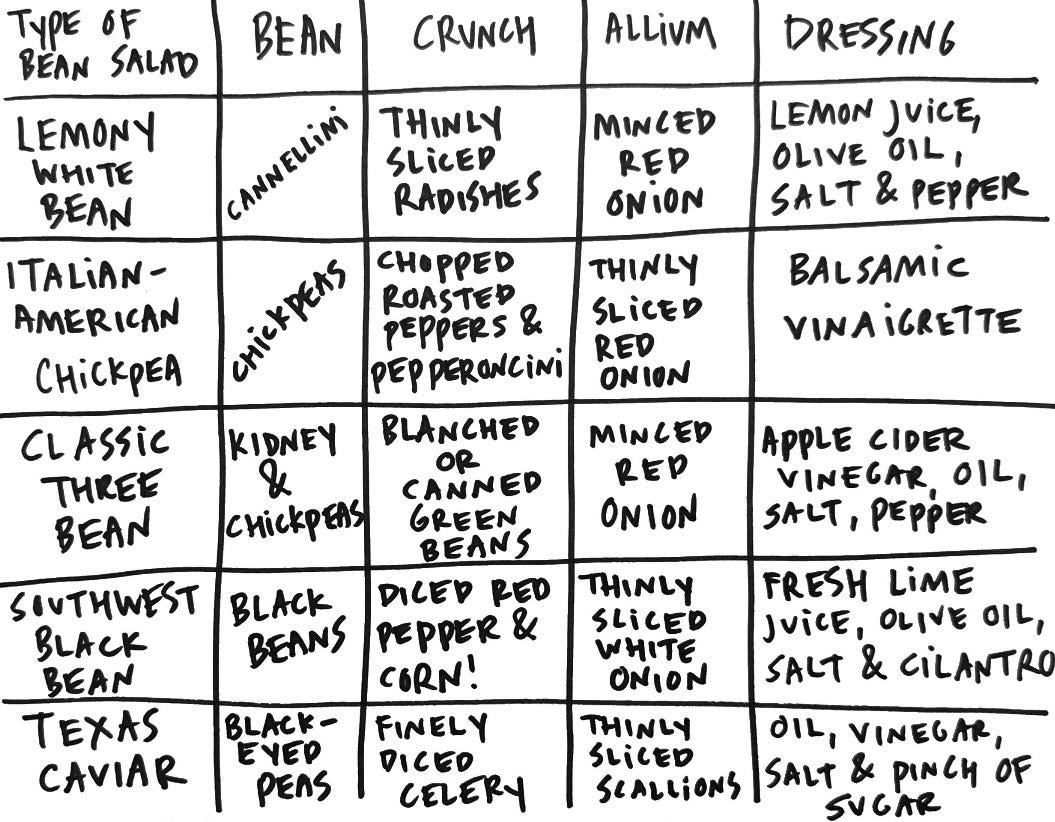 TYPE OF
BEAN SALAD
BEAN
CRUNCH
ALLIUM
DRESSING
LEMONY
WHITE
BEAN
CANNELLINI
THINLY
SLICED
RADISHES
MINCED
RED
ONION
LEMON JUICE,
OLIVE OIL,
SALT & PEPPER
ITALIAN-
AMERICAN
CHICKPEA
CHICKPEAS
CHOPPED
ROASTED
PEPPERS &
PEPPERONCINI
THINLY
SLICED
RED
ONION
BALSAMIC
VINAIGRETTE
CLASSIC
THREE
BEAN
KIDNEY
&
CHICKPEAS
BLANCHED
OR
CANNED
GREEN
BEANS
MINCED
RED
ONION
APPLE CIDER
VINEGAR, OIL,
SALT, PEPPER
SOUTHWEST
BLACK
BEAN
BLACK
BEANS
DICED RED
PEPPER &
CORN!
THINLY
SLICED
WHITE
ONION
FRESH LIME
JUICE, OLIVE OIL,
SALT & CILANTRO
TEXAS
CAVIAR
BLACK-
EYED
PEAS
FINELY
DICED
CELERY
THINLY
SLICED
SCALLIONS
OIL, VINEGAR,
SALT & PINCH OF
SUGAR